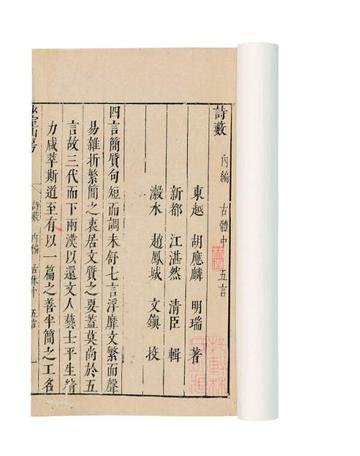 詩藪 內編 古體中 五言
東越 胡應麟 明瑞 著
新都 江湛然 清臣 輯
瀫水 趙鳳城 文鎮 校
四言簡質句短而調未舒七言浮靡文繁而聲
易雜折繁簡之衷居文質之要蓋莫尚於五
言故三代而下兩漢以還文人藝士平生精
力咸萃斯道至有以一篇之善半簡之工名
詩藪 內編 古體中 五言